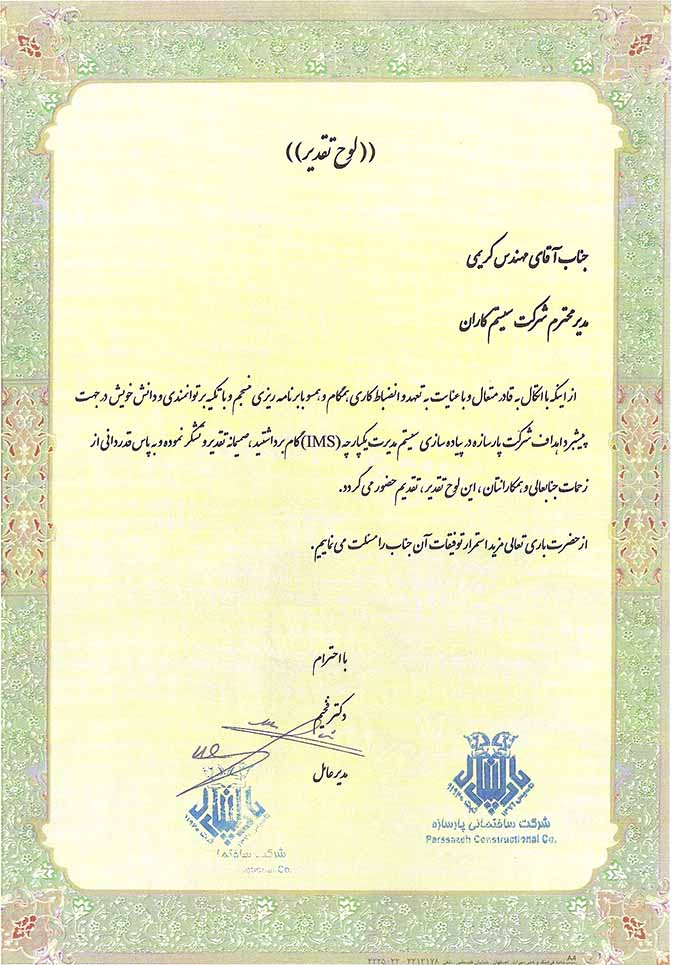 ((لوح تقدیر))
جناب آقای مهندس کریمی
مدیر محترم شرکت سیستم کاران
از اینکه با اتکال به قادر متعال و با عنایت به تعهد و انضباط کاری همگام و همسو با برنامه ریزی منسجم و با تکیه بر توانمندی و دانش خویش در جهت
پیشبرد اهداف شرکت پارسازه در پیاده سازی سیستم مدیریت یکپارچه (IMS) گام برداشتید، صمیمانه تقدیر و تشکر نموده و به پاس قدردانی از
زحمات جنابعالی و همکارانتان، این لوح تقدیر، تقدیم حضور می گردد.
از حضرت باری تعالی مزید استمرار توفیقات آن جناب را مسئلت می نماییم.
با احترام
دکتر فخیم
مدیر عامل
شرکت ساختمانی پارسازه
Parssazeh Constructional Co.
شرکت ساختما
Co.